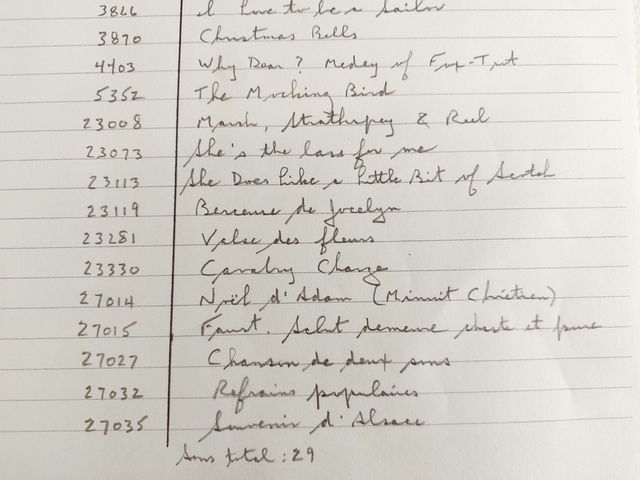 3866 I Love to be a Sailor
3870 Christmas Bells
4403 Why Dear? Medley of Fox-Trot
5352 The Mocking Bird
23008 Marsh, Strathspey & Reel
23073 She's the lass for me
23113 She Does Like a little Bit of Scotch
23119 Berceuse de Jocelyn
23281 Valse des fleurs
23330 Cavalry Charge
27014 Noël d'Adam (Minuit Chrétien)
27015 Faust. Salut demeure chaste et pure
27027 Chanson de deux sous
27032 Refrains populaires
27035 Souvenir d'Alsace
Sous total : 29